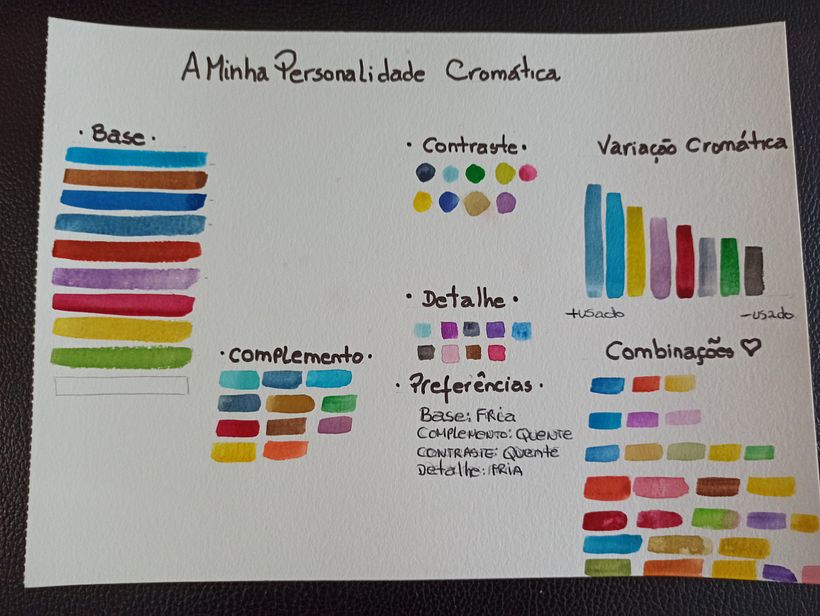 A Minha Personalidade Cromática
· Base ·
· Contraste ·
Variação Cromática
+usado
-usado
· Detalhe ·
· complemento ·
Combinações ♡
· Preferências ·
Base: FRia
COMPLEMENTO: QUENTE
CONTRASTE: QUente
Detalhe: FRIA